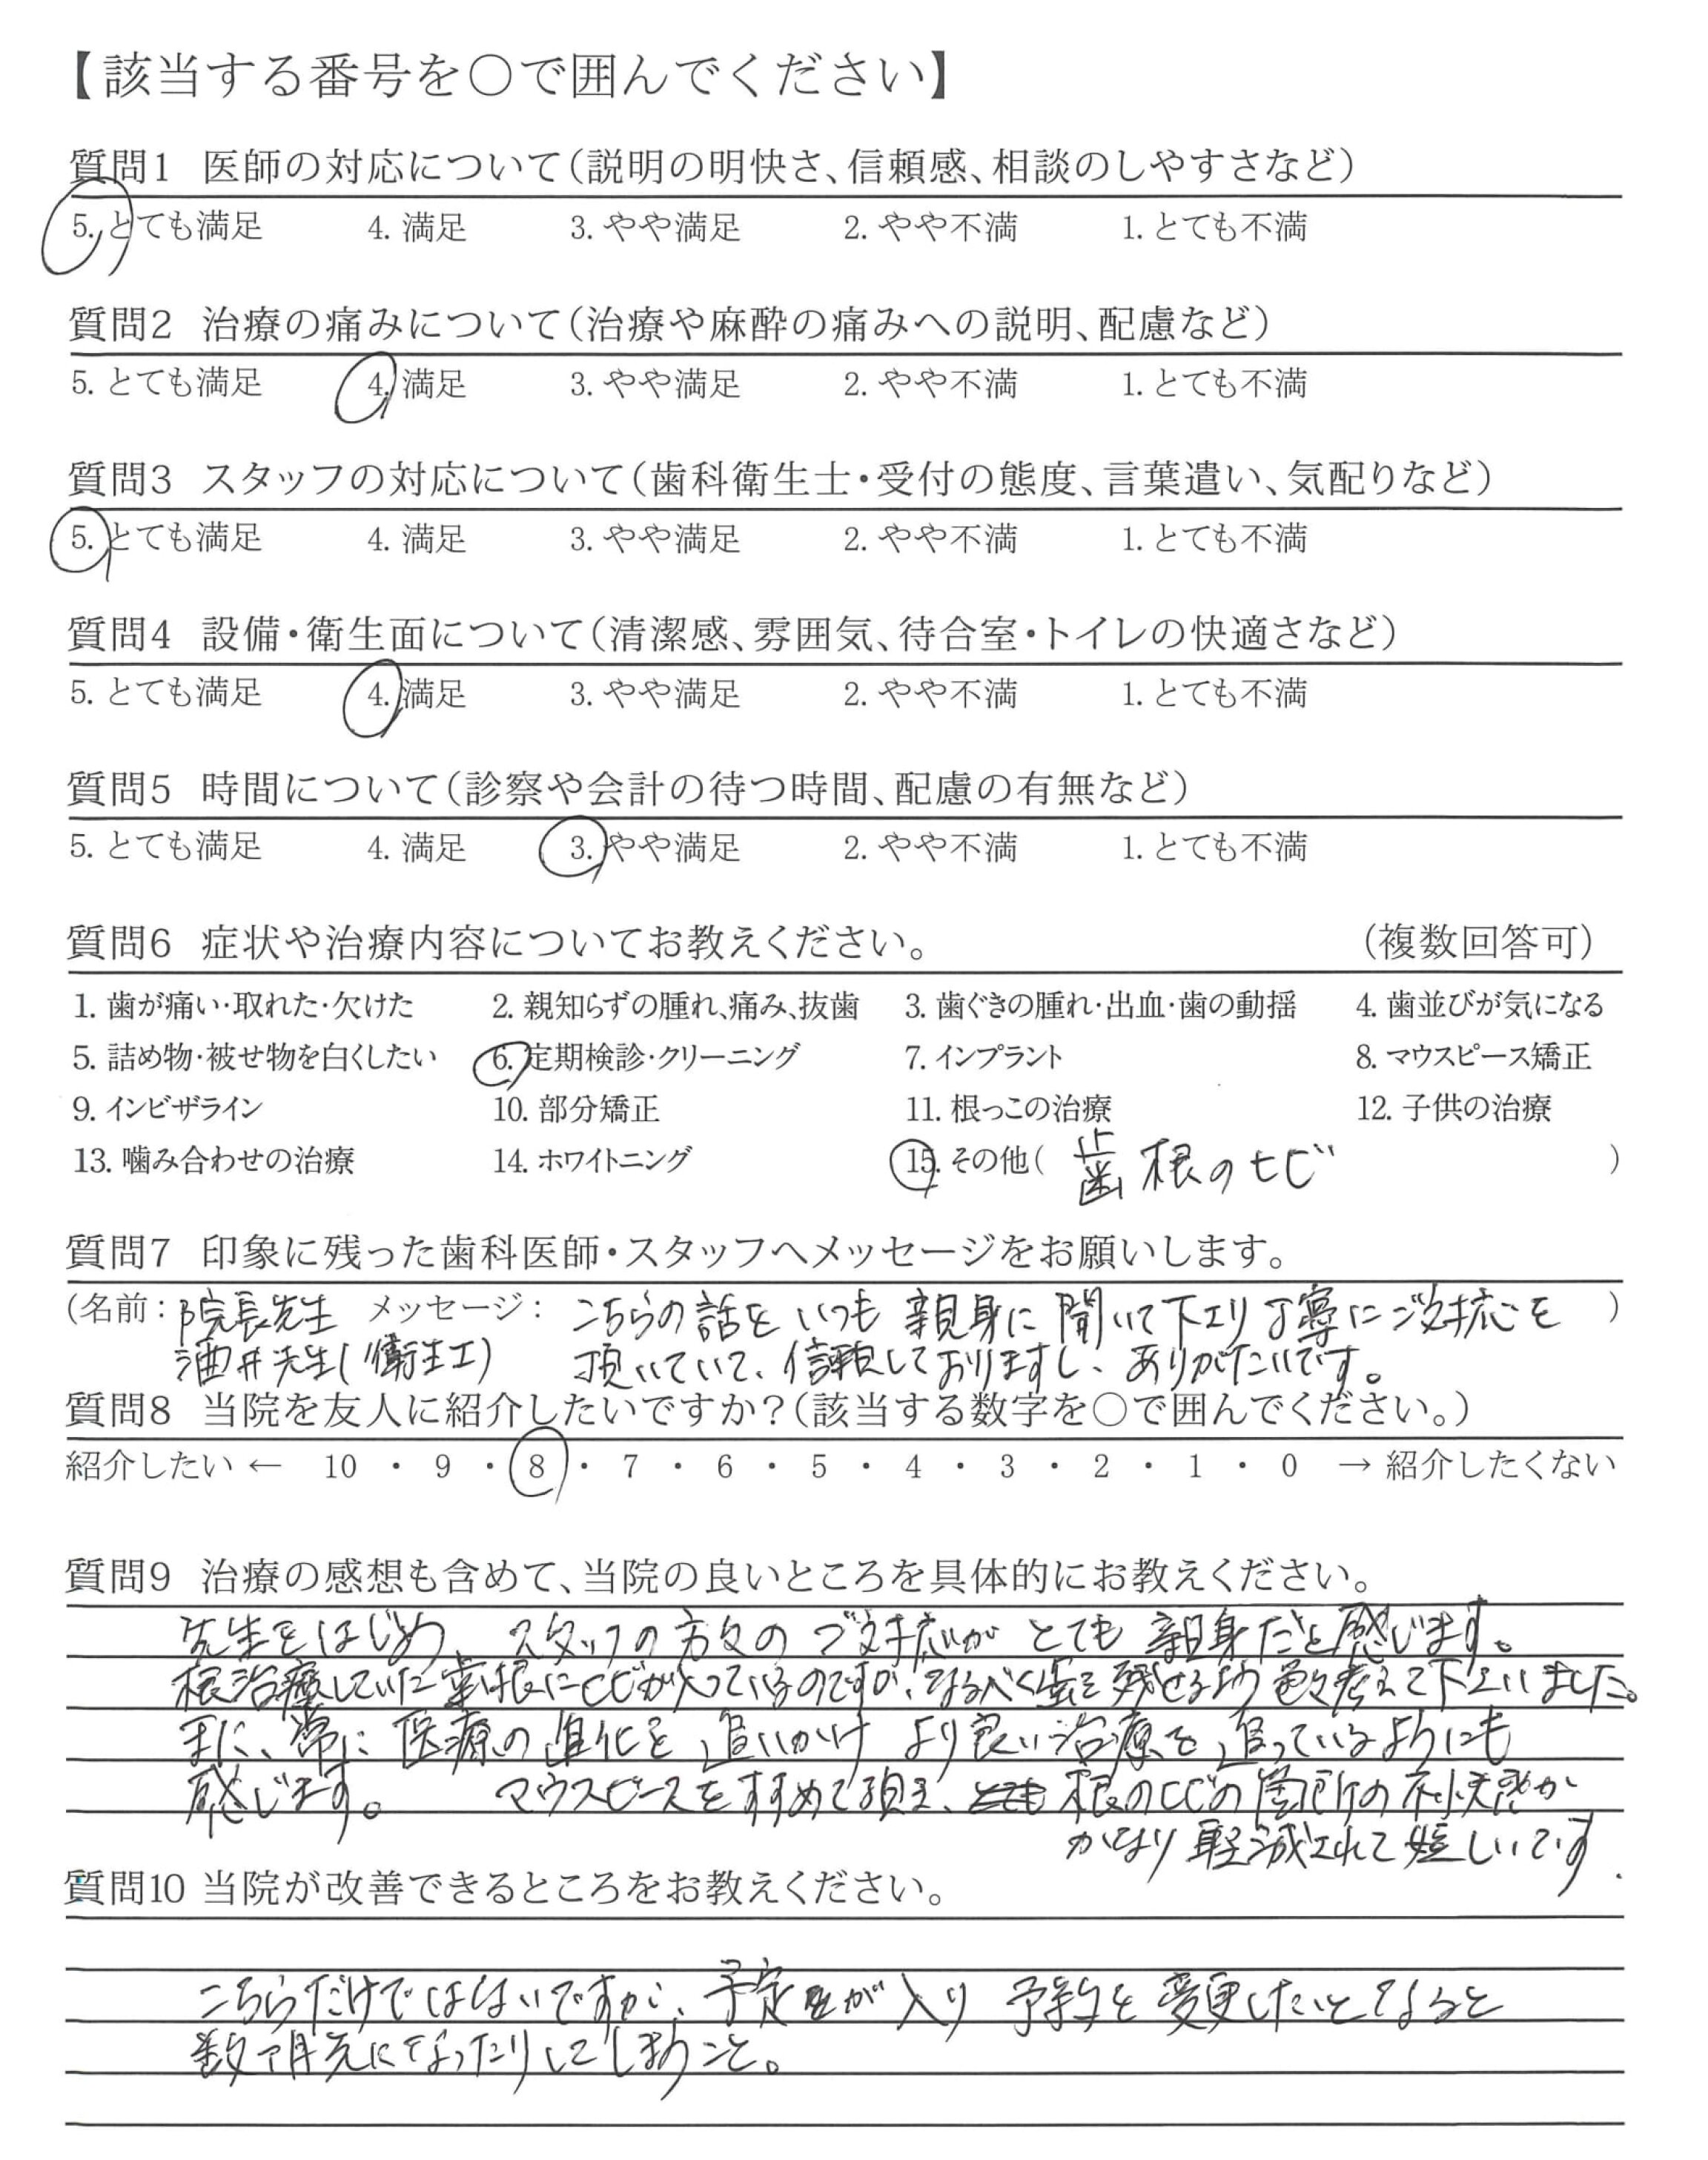 【該当する番号を〇で囲んでください】
質問1 医師の対応について(説明の明快さ、信頼感、相談のしやすさなど)
5. とても満足 4. 満足 3. やや満足 2. やや不満 1. とても不満
質問2 治療の痛みについて(治療や麻酔の痛みへの説明、配慮など)
5. とても満足 4. 満足 3. やや満足 2. やや不満 1. とても不満
質問3 スタッフの対応について(歯科衛生士・受付の態度、言葉遣い、気配りなど)
5. とても満足 4. 満足 3. やや満足 2. やや不満 1. とても不満
質問4 設備・衛生面について(清潔感、雰囲気、待合室・トイレの快適さなど)
5. とても満足 4. 満足 3. やや満足 2. やや不満 1. とても不満
質問5 時間について(診察や会計の待つ時間、配慮の有無など)
5. とても満足 4. 満足 3. やや満足 2. やや不満 1. とても不満
質問6 症状や治療内容についてお教えください。 (複数回答可)
1. 歯が痛い・取れた・欠けた 2. 親知らずの腫れ、痛み、抜歯 3. 歯ぐきの腫れ・出血・歯の動揺 4. 歯並びが気になる
5. 詰め物・被せ物を白くしたい 6. 定期検診・クリーニング 7. インプラント 8. マウスピース矯正
9. インビザライン 10. 部分矯正 11. 根っこの治療 12. 子供の治療
13. 噛み合わせの治療 14. ホワイトニング 15. その他( 歯根のヒビ )
質問7 印象に残った歯科医師・スタッフへメッセージをお願いします。
(名前: 院長先生 メッセージ: こちらの話をいつも親身に聞いて下さり丁寧にご対応を )
酒井先生(衛生士) 頂いていて、信頼しておりますし、ありがたいです。
質問8 当院を友人に紹介したいですか?(該当する数字を〇で囲んでください。)
紹介したい ← 10 ・ 9 ・ 8 ・ 7 ・ 6 ・ 5 ・ 4 ・ 3 ・ 2 ・ 1 ・ 0 → 紹介したくない
質問9 治療の感想も含めて、当院の良いところを具体的にお教えください。
先生をはじめ スタッフの方々のご対応がとても親身だと感じます。
根治療していた歯根にヒビが入っているのですが、なるべく歯を残せるよう色々考えて下さいました。
また、常に医療の進化を追いかけ より良い治療を追っているようにも
感じます。 マウスピースをすすめて頂き、根のヒビの箇所の不快感が
かなり軽減されて嬉しいです.
質問10 当院が改善できるところをお教えください。
こちらだけではないですが、予定が入り 予約を変更したいとなると
数ヶ月先になったりしてしまうこと。